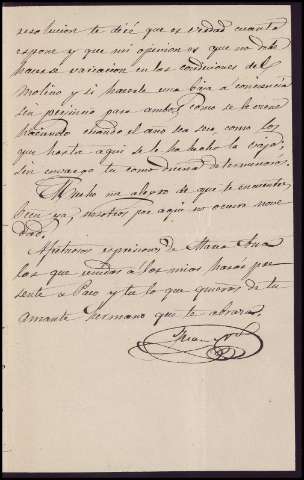 resolucion te diré que es verdad cuanto
espone y que mi opinion es que no debe
hacerse variacion en las condiciones del
Molino y si hacerle una baja á conciencia
sin perjuicio para ambos como se le viene
haciendo cuando el año sea seco, como los
que hasta aqui se le ha hecho la rebaja,
sin envargo tu como dueña determinarás.
Mucho me alegro de que te encuentres
bien ya, nosotros por aqui no ocurre nove
dad.
Afectuosas espresiones de Maria Ana
las que unidas a las mias harás pre
sente a Paco y tu lo que quieras de tu
amante hermano que te abraza,